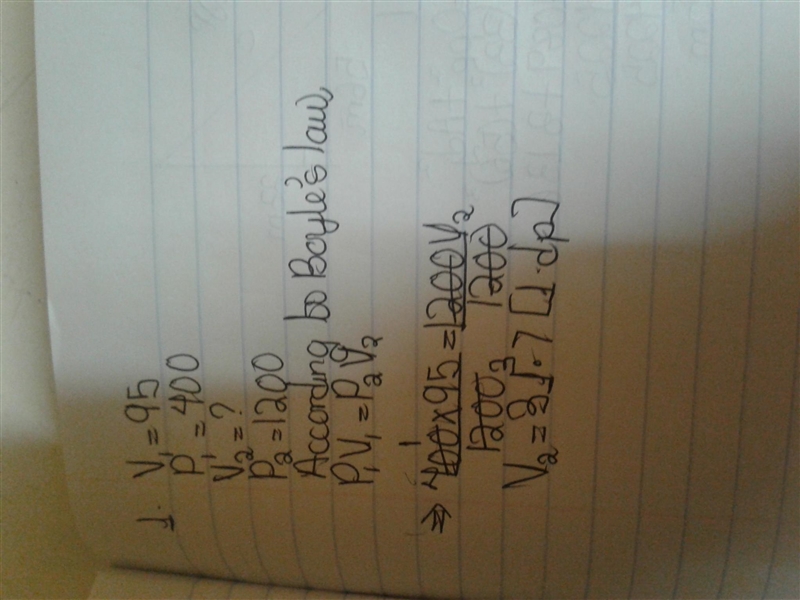 1. V₁ = 95
P₁ = 400
V₂ = ?
P₂ = 1200
According to Boyle's law,
P₁V₁ = P₂V₂
⇒ 400 x 95 = 1200V₂
1 1200 3 1200
V₂ = 31.7 [1.dp]